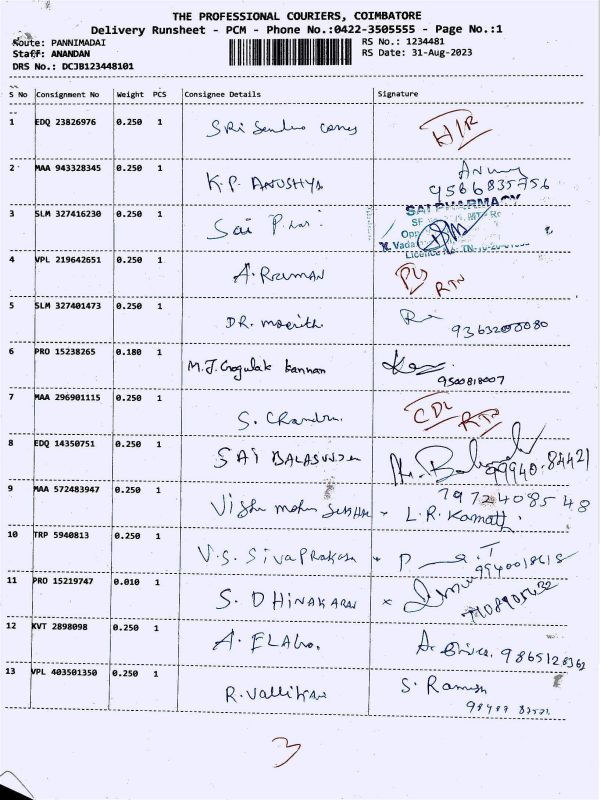 THE PROFESSIONAL COURIERS, COIMBATORE
Delivery Runsheet - PCM - Phone No.:0422-3505555 - Page No.:1
Route: PANNIMADAI RS No.: 1234481
Staff: ANANDAN RS Date: 31-Aug-2023
DRS No.: DCJB123448101
S No Consignment No Weight PCS Consignee Details Signature
1 EDQ 23826976 0.250 1 SRi
2 MAA 943328345 0.250 1 K.P. ANUSHYA 9566835756
3 SLM 327416230 0.250 1 Sai
SAI PHARMACY
4 VPL 219642651 0.250 1 RTN
5 SLM 327401473 0.250 1 DR.
6 PRO 15238265 0.180 1 M.J. Gogulak kannan
9500818007
7 MAA 296901115 0.250 1 S. Chandru. CDL RTN
8 EDQ 14350751 0.250 1 SAI BALASUNDER 99940-84421
9 MAA 572483947 0.250 1 7972408548
L.R. Kamath.
10 TRP 5940813 0.250 1 V.S. SivaPrakash 9940018618
11 PRO 15219747 0.010 1 S. DHINAKARAN
12 KVT 2898098 0.250 1 A. 9865128362
13 VPL 403501350 0.250 1 R. Vallikan S. Ramesh
3